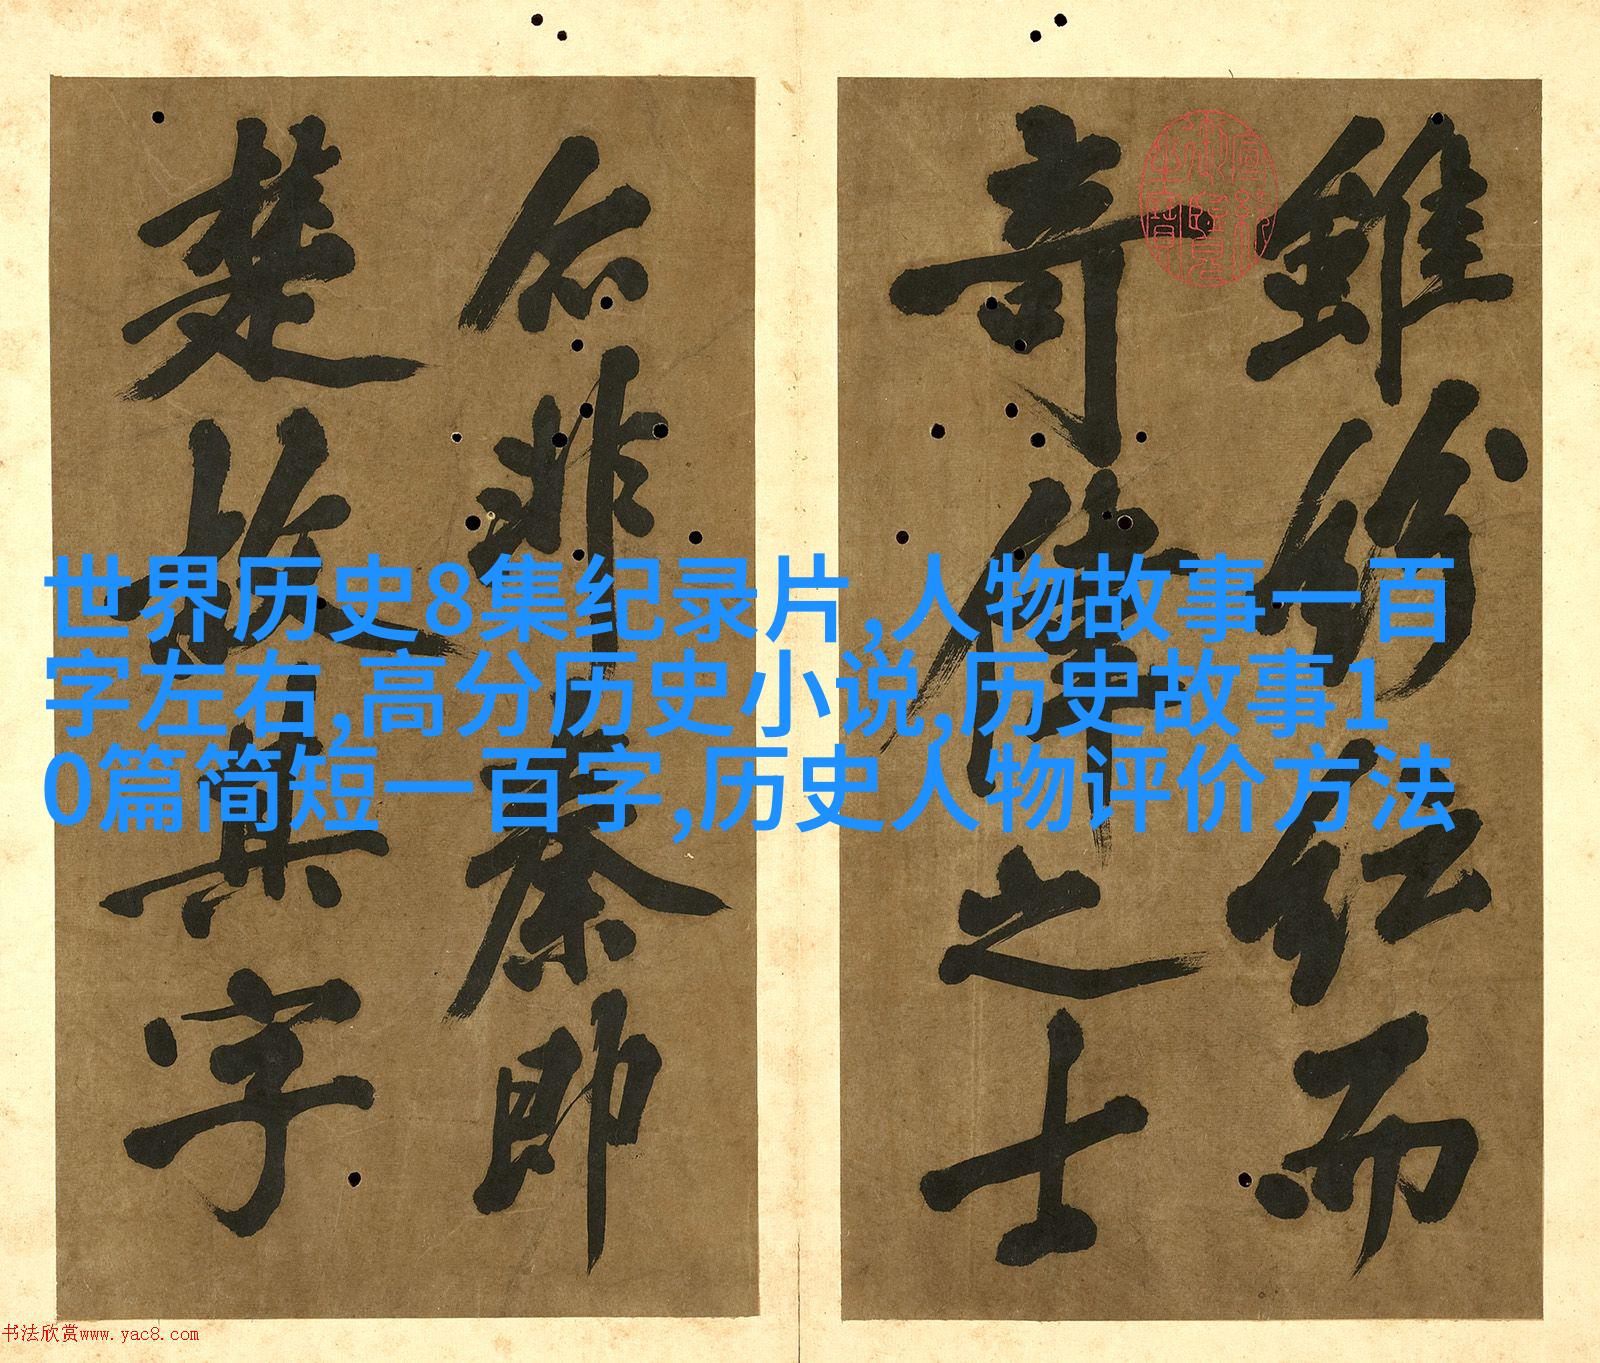 世界历史8集纪录片,人物故事一百
字左右,高分历史小说,历史故事1
0篇简短一百字,历史人物评价方法
雖紛紜而
奇偉之士
非秦即
楚故其字
书法欣赏www.yac8.com